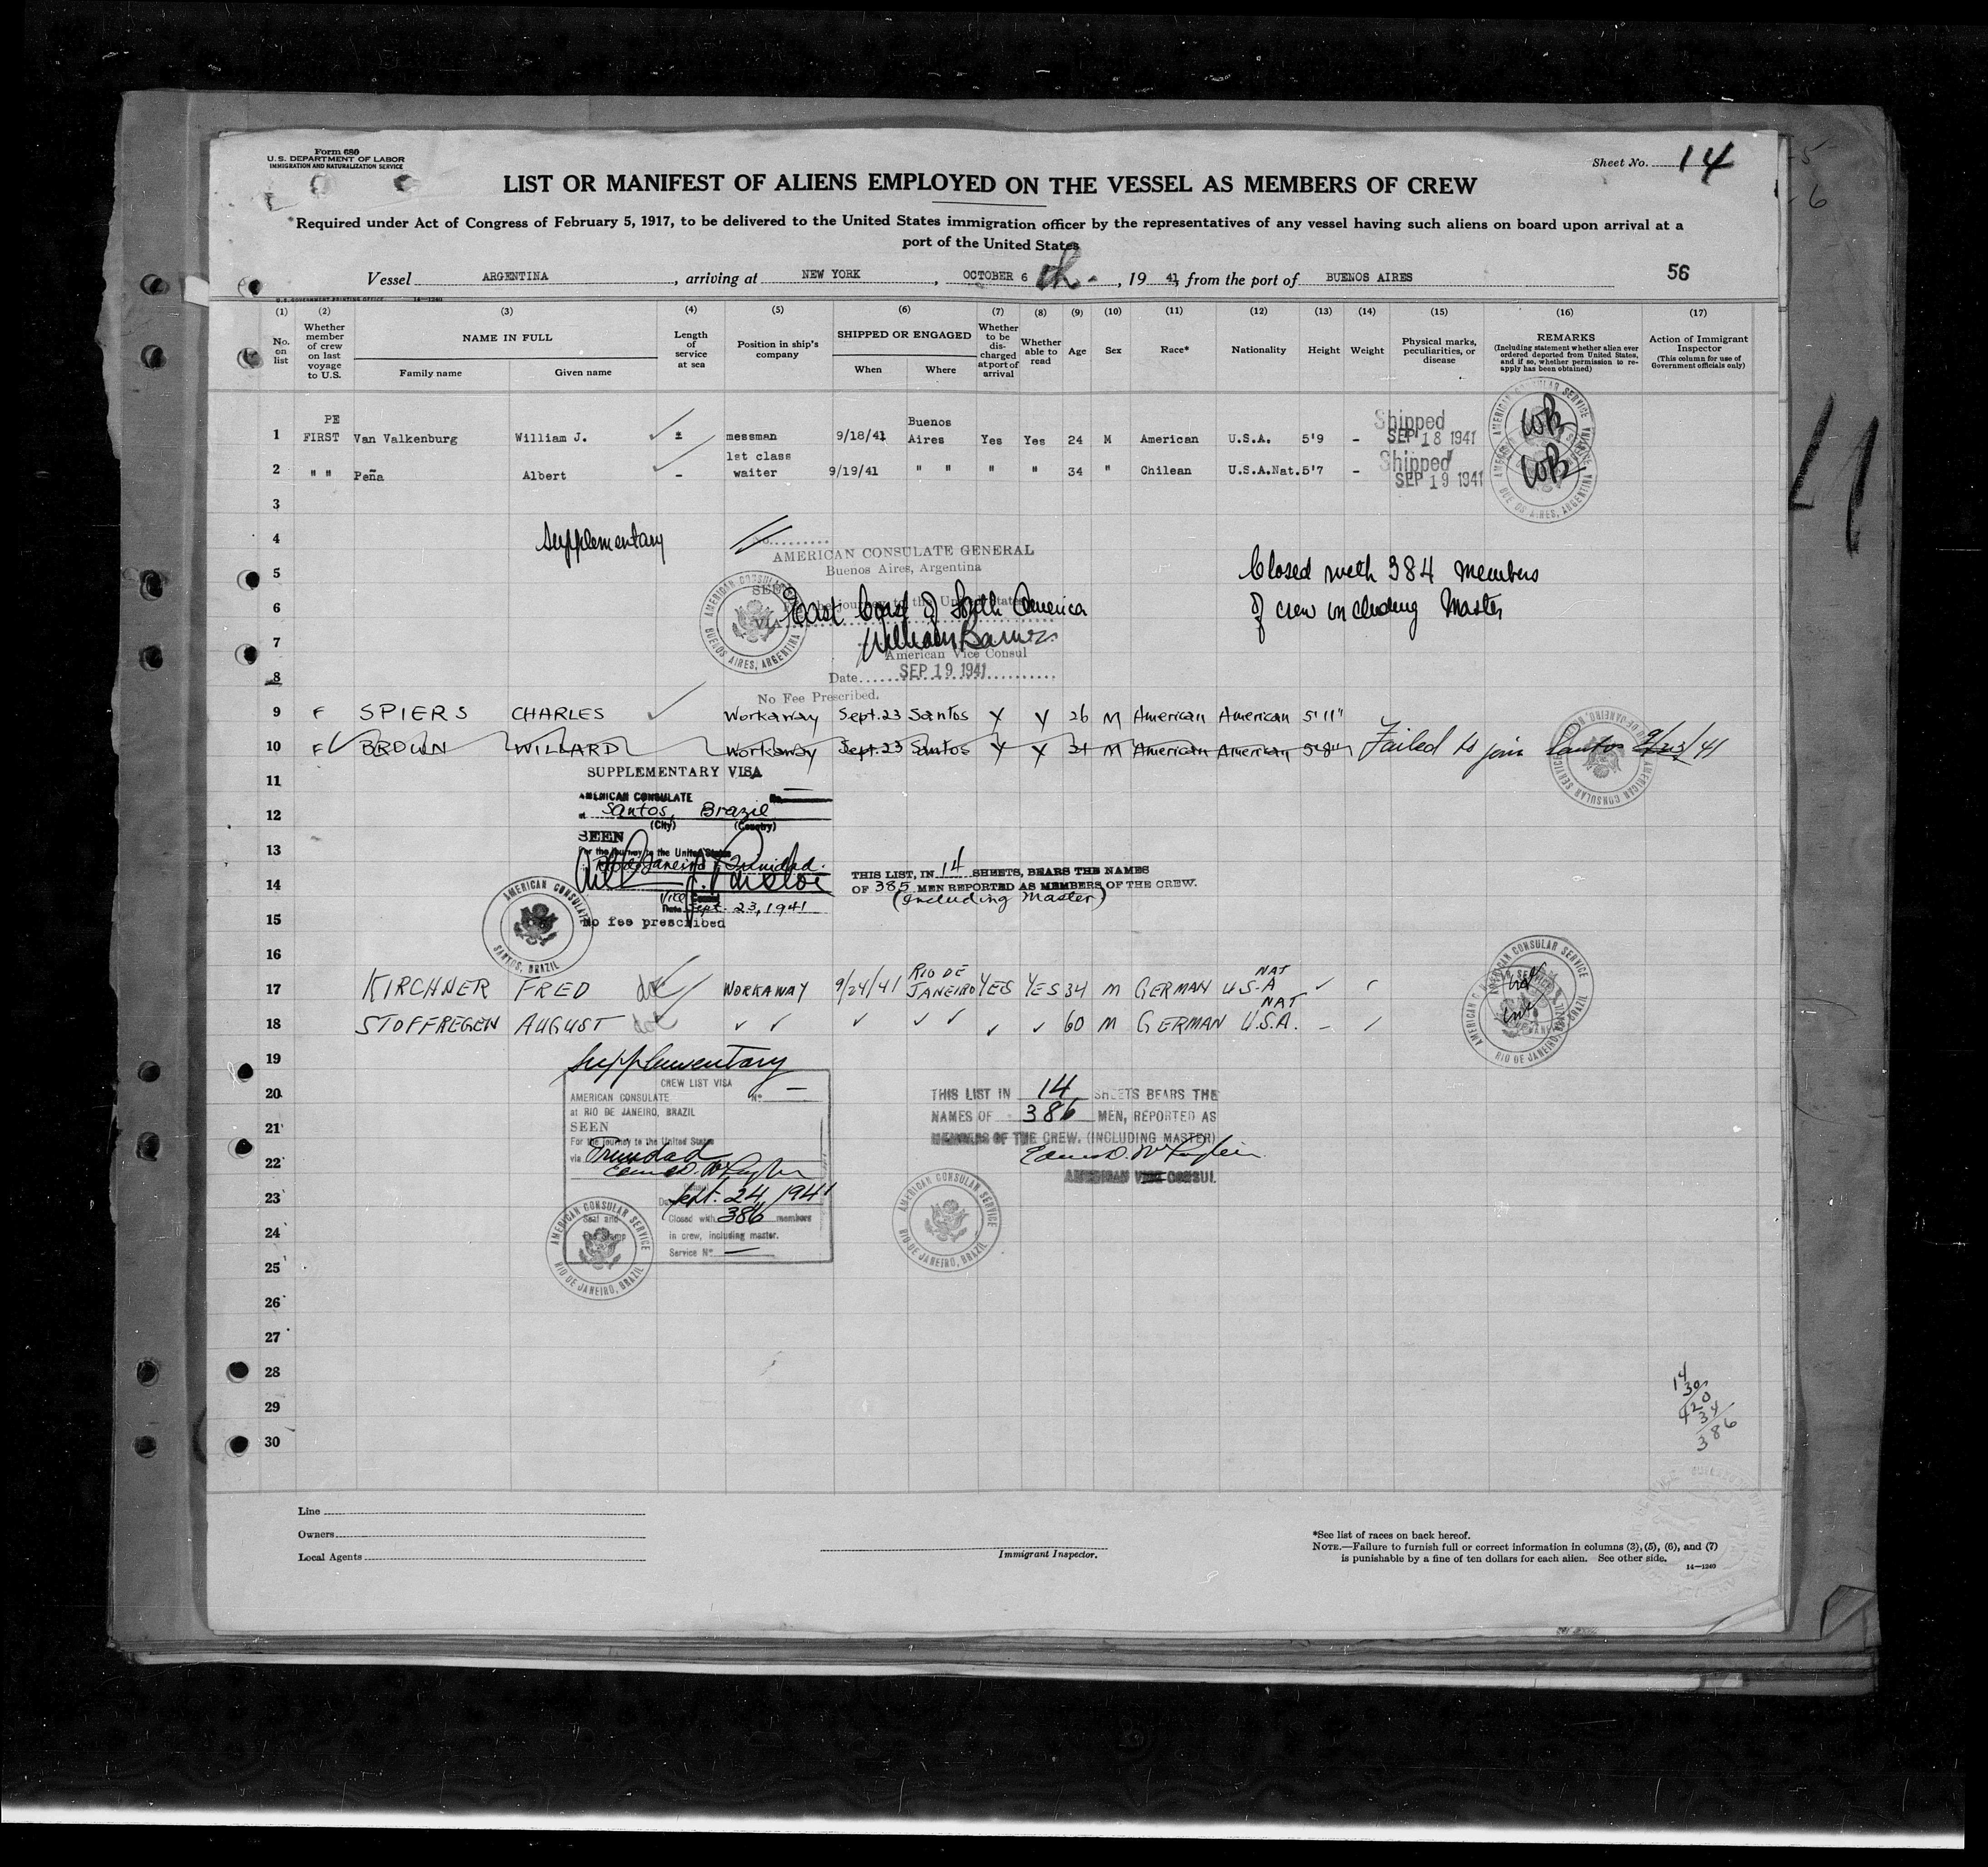 Form 680
U.S. DEPARTMENT OF LABOR
IMMIGRATION AND NATURALIZATION SERVICE
Sheet No. 14
LIST OR MANIFEST OF ALIENS EMPLOYED ON THE VESSEL AS MEMBERS OF CREW
Required under Act of Congress of February 5, 1917, to be delivered to the United States immigration officer by the representatives of any vessel having such aliens on board upon arrival at a
port of the United States
Vessel ARGENTINA, arriving at NEW YORK, OCTOBER 6 th, 19 41, from the port of BUENOS AIRES
56
U.S. GOVERNMENT PRINTING OFFICE 14—1240
(1) No. on list
(2) Whether member of crew on last voyage to U.S.
(3) NAME IN FULL
Family name Given name
(4) Length of service at sea
(5) Position in ship's company
(6) SHIPPED OR ENGAGED
When Where
(7) Whether to be discharged at port of arrival
(8) Whether able to read
(9) Age
(10) Sex
(11) Race*
(12) Nationality
(13) Height
(14) Weight
(15) Physical marks, peculiarities, or disease
(16) REMARKS
(Including statement whether alien ever ordered deported from United States, and if so, whether permission to reapply has been obtained)
(17) Action of Immigrant Inspector
(This column for use of Government officials only)
1 PE FIRST Van Valkenburg William J. messman 9/18/41 Buenos Aires Yes Yes 24 M American U.S.A. 5'9 - Shipped SEP 18 1941 WB
2 " " Peña Albert - 1st class waiter 9/19/41 " " " " 34 " Chilean U.S.A.Nat. 5'7 - Shipped SEP 19 1941 WB
AMERICAN CONSULAR SERVICE
BUENOS AIRES, ARGENTINA
3
4 Supplementary
No.
AMERICAN CONSULATE GENERAL
5 Buenos Aires, Argentina
Closed with 384 members
SEEN
6 For the journey to the United States
of crew including Master
VIA East Coast of South America
7 William Barnes
American Vice Consul
8 Date SEP 19 1941
No Fee Prescribed.
AMERICAN CONSULAR
BUENOS AIRES, ARGENTINA
9 F SPIERS CHARLES Workaway Sept. 23 Santos Y Y 26 M American American 5'11"
10 F BROWN WILLARD Workaway Sept. 23 Santos Y Y 21 M American American 5'8" Failed to join Santos 9/23/41
AMERICAN CONSULAR SERVICE
RIO DE JANEIRO, BRAZIL
11 SUPPLEMENTARY VISA
AMERICAN CONSULATE No. —
12 at Santos, Brazil
(City) (Country)
13 SEEN
For the journey to the United States
Rio de Janeiro & Trinidad.
THIS LIST, IN 14 SHEETS, BEARS THE NAMES
14 OF 385 MEN REPORTED AS MEMBERS OF THE CREW.
(including Master)
Vice Consul
Date Sept. 23, 1941
15 No fee prescribed
AMERICAN CONSULATE
SANTOS, BRAZIL
16
17 KIRCHNER FRED WORKAWAY 9/24/41 RIO DE JANEIRO YES YES 34 M GERMAN NAT U.S.A
18 STOFFREGEN AUGUST 60 M GERMAN NAT U.S.A. -
AMERICAN CONSULAR SERVICE
RIO DE JANEIRO, BRAZIL
19 Supplementary
CREW LIST VISA
20 AMERICAN CONSULATE No. —
at RIO DE JANEIRO, BRAZIL
SEEN
For the journey to the United States
via Trinidad
Consul
Date Sept. 24, 1941
Closed with 386 members
in crew, including master.
Service No. —
Seal and
Fee Stamp
AMERICAN CONSULAR SERVICE
RIO DE JANEIRO, BRAZIL
THIS LIST IN 14 SHEETS BEARS THE
21 NAMES OF 386 MEN, REPORTED AS
MEMBERS OF THE CREW. (INCLUDING MASTER)
22
AMERICAN VICE CONSUL
AMERICAN CONSULAR SERVICE
RIO DE JANEIRO, BRAZIL
23
24
25
26
27
28
29
30
14
30
420
34
386
Line
Owners
Local Agents
Immigrant Inspector.
*See list of races on back hereof.
NOTE.—Failure to furnish full or correct information in columns (3), (5), (6), and (7)
is punishable by a fine of ten dollars for each alien. See other side.
14—1240